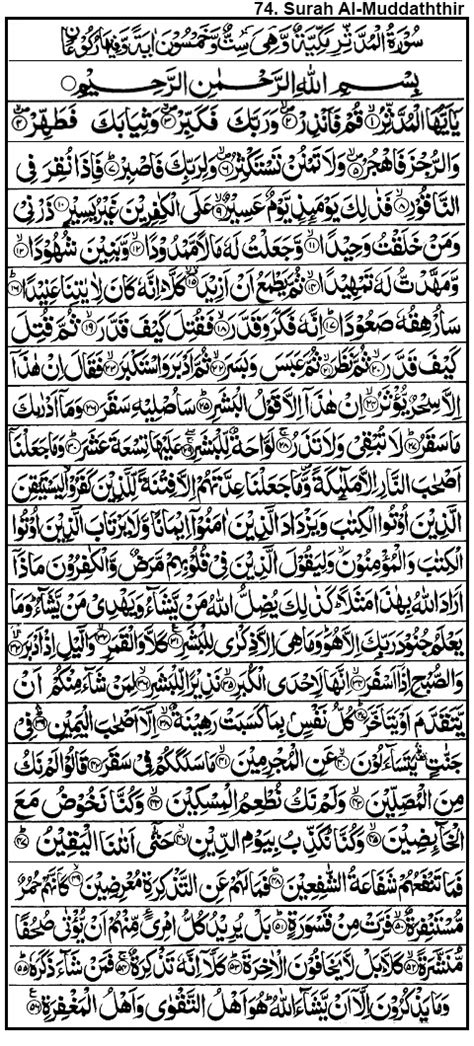 74. Surah Al-Muddaththir
سُوْرَةُ الْمُدَّثِّرِ مَكِّيَّةٌ وَّهِيَ سِتٌّ وَّخَمْسُوْنَ اٰيَةً وَّفِيْهَا رُكُوْعَانِ
بِسْمِ اللّٰهِ الرَّحْمٰنِ الرَّحِيْمِ
يٰۤاَيُّهَا الْمُدَّثِّرُ ۙ﴿۱﴾ قُمْ فَاَنْذِرْ ۙ﴿۲﴾ وَرَبَّكَ فَكَبِّرْ ۙ﴿۳﴾ وَثِيَابَكَ فَطَهِّرْ ۙ﴿۴﴾
وَالرُّجْزَ فَاهْجُرْ ۙ﴿۵﴾ وَلَا تَمْنُنْ تَسْتَكْثِرُ ۙ﴿۶﴾ وَلِرَبِّكَ فَاصْبِرْ ؕ﴿۷﴾ فَاِذَا نُقِرَ فِي
النَّاقُوْرِ ۙ﴿۸﴾ فَذٰلِكَ يَوْمَئِذٍ يَّوْمٌ عَسِيْرٌ ۙ﴿۹﴾ عَلَى الْكٰفِرِيْنَ غَيْرُ يَسِيْرٍ ﴿۱۰﴾ ذَرْنِيْ
وَمَنْ خَلَقْتُ وَحِيْدًا ۙ﴿۱۱﴾ وَّجَعَلْتُ لَهٗ مَالًا مَّمْدُوْدًا ۙ﴿۱۲﴾ وَّبَنِيْنَ شُهُوْدًا ۙ﴿۱۳﴾
وَّمَهَّدْتُّ لَهٗ تَمْهِيْدًا ۙ﴿۱۴﴾ ثُمَّ يَطْمَعُ اَنْ اَزِيْدَ ۙ﴿۱۵﴾ كَلَّا ؕ اِنَّهٗ كَانَ لِاٰيٰتِنَا عَنِيْدًا ؕ﴿۱۶﴾
سَاُرْهِقُهٗ صَعُوْدًا ؕ﴿۱۷﴾ اِنَّهٗ فَكَّرَ وَقَدَّرَ ۙ﴿۱۸﴾ فَقُتِلَ كَيْفَ قَدَّرَ ۙ﴿۱۹﴾ ثُمَّ قُتِلَ
كَيْفَ قَدَّرَ ۙ﴿۲۰﴾ ثُمَّ نَظَرَ ۙ﴿۲۱﴾ ثُمَّ عَبَسَ وَبَسَرَ ۙ﴿۲۲﴾ ثُمَّ اَدْبَرَ وَاسْتَكْبَرَ ۙ﴿۲۳﴾ فَقَالَ اِنْ هٰذَاۤ
اِلَّا سِحْرٌ يُّؤْثَرُ ۙ﴿۲۴﴾ اِنْ هٰذَاۤ اِلَّا قَوْلُ الْبَشَرِ ؕ﴿۲۵﴾ سَاُصْلِيْهِ سَقَرَ ﴿۲۶﴾ وَمَاۤ اَدْرٰىكَ
مَا سَقَرُ ؕ﴿۲۷﴾ لَا تُبْقِيْ وَلَا تَذَرُ ۚ﴿۲۸﴾ لَوَّاحَةٌ لِّلْبَشَرِ ۚ﴿۲۹﴾ عَلَيْهَا تِسْعَةَ عَشَرَ ؕ﴿۳۰﴾ وَمَا جَعَلْنَاۤ
اَصْحٰبَ النَّارِ اِلَّا مَلٰٓئِكَةً ۪ وَّمَا جَعَلْنَا عِدَّتَهُمْ اِلَّا فِتْنَةً لِّلَّذِيْنَ كَفَرُوْا ۙ لِيَسْتَيْقِنَ
الَّذِيْنَ اُوْتُوا الْكِتٰبَ وَيَزْدَادَ الَّذِيْنَ اٰمَنُوْۤا اِيْمَانًا وَّلَا يَرْتَابَ الَّذِيْنَ اُوْتُوا
الْكِتٰبَ وَالْمُؤْمِنُوْنَ ۙ وَلِيَقُوْلَ الَّذِيْنَ فِيْ قُلُوْبِهِمْ مَّرَضٌ وَّالْكٰفِرُوْنَ مَاذَاۤ
اَرَادَ اللّٰهُ بِهٰذَا مَثَلًا ؕ كَذٰلِكَ يُضِلُّ اللّٰهُ مَنْ يَّشَآءُ وَيَهْدِيْ مَنْ يَّشَآءُ ؕ وَمَا
يَعْلَمُ جُنُوْدَ رَبِّكَ اِلَّا هُوَ ؕ وَمَا هِيَ اِلَّا ذِكْرٰى لِلْبَشَرِ ﴿۳۱﴾ كَلَّا وَالْقَمَرِ ۙ﴿۳۲﴾ وَالَّيْلِ اِذْ اَدْبَرَ ۙ﴿۳۳﴾
وَالصُّبْحِ اِذَاۤ اَسْفَرَ ۙ﴿۳۴﴾ اِنَّهَا لَاِحْدَى الْكُبَرِ ۙ﴿۳۵﴾ نَذِيْرًا لِّلْبَشَرِ ۙ﴿۳۶﴾ لِمَنْ شَآءَ مِنْكُمْ اَنْ
يَّتَقَدَّمَ اَوْ يَتَاَخَّرَ ؕ﴿۳۷﴾ كُلُّ نَفْسٍ بِمَا كَسَبَتْ رَهِيْنَةٌ ۙ﴿۳۸﴾ اِلَّاۤ اَصْحٰبَ الْيَمِيْنِ ؕ﴿۳۹﴾ فِيْ
جَنّٰتٍ ۛؕ يَتَسَآءَلُوْنَ ۙ﴿۴۰﴾ عَنِ الْمُجْرِمِيْنَ ۙ﴿۴۱﴾ مَا سَلَكَكُمْ فِيْ سَقَرَ ﴿۴۲﴾ قَالُوْا لَمْ نَكُ
مِنَ الْمُصَلِّيْنَ ۙ﴿۴۳﴾ وَلَمْ نَكُ نُطْعِمُ الْمِسْكِيْنَ ۙ﴿۴۴﴾ وَكُنَّا نَخُوْضُ مَعَ
الْخَآئِضِيْنَ ۙ﴿۴۵﴾ وَكُنَّا نُكَذِّبُ بِيَوْمِ الدِّيْنِ ۙ﴿۴۶﴾ حَتّٰۤى اَتٰىنَا الْيَقِيْنُ ؕ﴿۴۷﴾
فَمَا تَنْفَعُهُمْ شَفَاعَةُ الشّٰفِعِيْنَ ؕ﴿۴۸﴾ فَمَا لَهُمْ عَنِ التَّذْكِرَةِ مُعْرِضِيْنَ ۙ﴿۴۹﴾ كَاَنَّهُمْ حُمُرٌ
مُّسْتَنْفِرَةٌ ۙ﴿۵۰﴾ فَرَّتْ مِنْ قَسْوَرَةٍ ؕ﴿۵۱﴾ بَلْ يُرِيْدُ كُلُّ امْرِئٍ مِّنْهُمْ اَنْ يُّؤْتٰى صُحُفًا
مُّنَشَّرَةً ۙ﴿۵۲﴾ كَلَّا ؕ بَلْ لَّا يَخَافُوْنَ الْاٰخِرَةَ ؕ﴿۵۳﴾ كَلَّاۤ اِنَّهٗ تَذْكِرَةٌ ۚ﴿۵۴﴾ فَمَنْ شَآءَ ذَكَرَهٗ ؕ﴿۵۵﴾
وَمَا يَذْكُرُوْنَ اِلَّاۤ اَنْ يَّشَآءَ اللّٰهُ ؕ هُوَ اَهْلُ التَّقْوٰى وَاَهْلُ الْمَغْفِرَةِ ﴿۵۶﴾